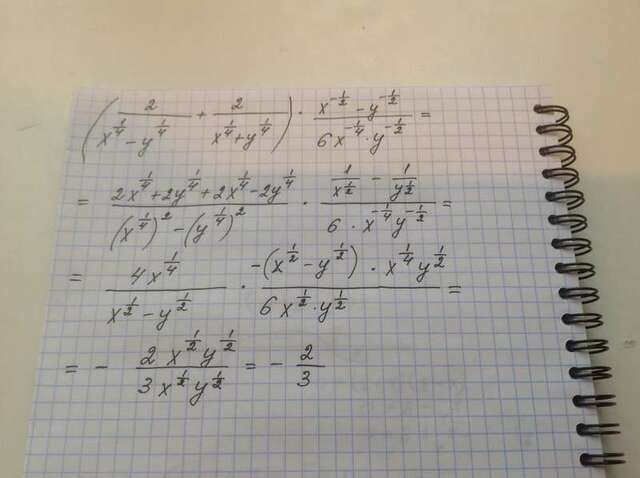 (2/(x^(1/4) - y^(1/4)) + 2/(x^(1/4) + y^(1/4))) · (x^(-1/2) - y^(-1/2))/(6x^(-1/4) · y^(-1/2)) =
= (2x^(1/4) + 2y^(1/4) + 2x^(1/4) - 2y^(1/4))/((x^(1/4))^2 - (y^(1/4))^2) · (1/x^(1/2) - 1/y^(1/2))/(6 · x^(-1/4) y^(-1/2)) =
= 4x^(1/4)/(x^(1/2) - y^(1/2)) · (-(x^(1/2) - y^(1/2)) · x^(1/4) y^(1/2))/(6x^(1/2) · y^(1/2)) =
= - (2x^(1/2) y^(1/2))/(3x^(1/2) y^(1/2)) = - 2/3